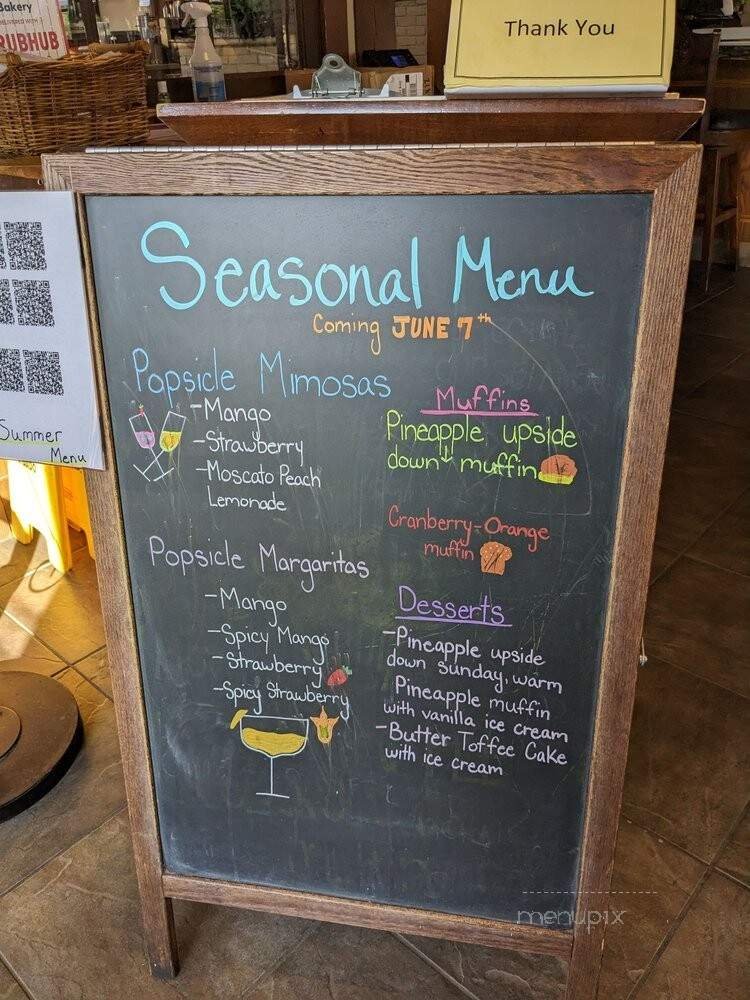 Bakery
DELIVERED WITH
RUBHUB
Thank You
Summer
Menu
Seasonal Menu
Coming JUNE 7th
Popsicle Mimosas
-Mango
-Strawberry
-Moscato Peach
Lemonade
Popsicle Margaritas
-Mango
-Spicy Mango
-Strawberry
-Spicy Strawberry
Muffins
Pineapple upside
down muffin
Cranberry-Orange
muffin
Desserts
-Pineapple upside
down sunday, warm
Pineapple muffin
with vanilla ice cream
-Butter Toffee Cake
with ice cream
menupix